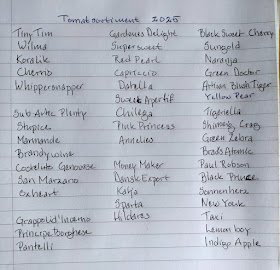 Tomatsortiment 2025
Tiny Tim Gardeners Delight Black Sweet Cherry
Wilma Supersweet Sungold
Koralik Red Pearl Naranja
Cherno Capriccio Green Doctor
Whippersnapper Datella Artisan Blush Tiger
Sweet Aperitif Yellow Pear
Sub Artic Plenty Chilega Tigerella
Stupice Pink Princess Shimeig Craig
Marmande Annelies Green Zebra
Brandywine Brads Atomic
Costoluto Genovese Money Maker Paul Robson
San Marzano Dansk Export Black Prince
Oxheart Katja Sonnenherz
Sparta New York
Grappoli d'Inverno Hildares Taxi
Principe Borghese Lemon boy
Pantelli Indigo Apple